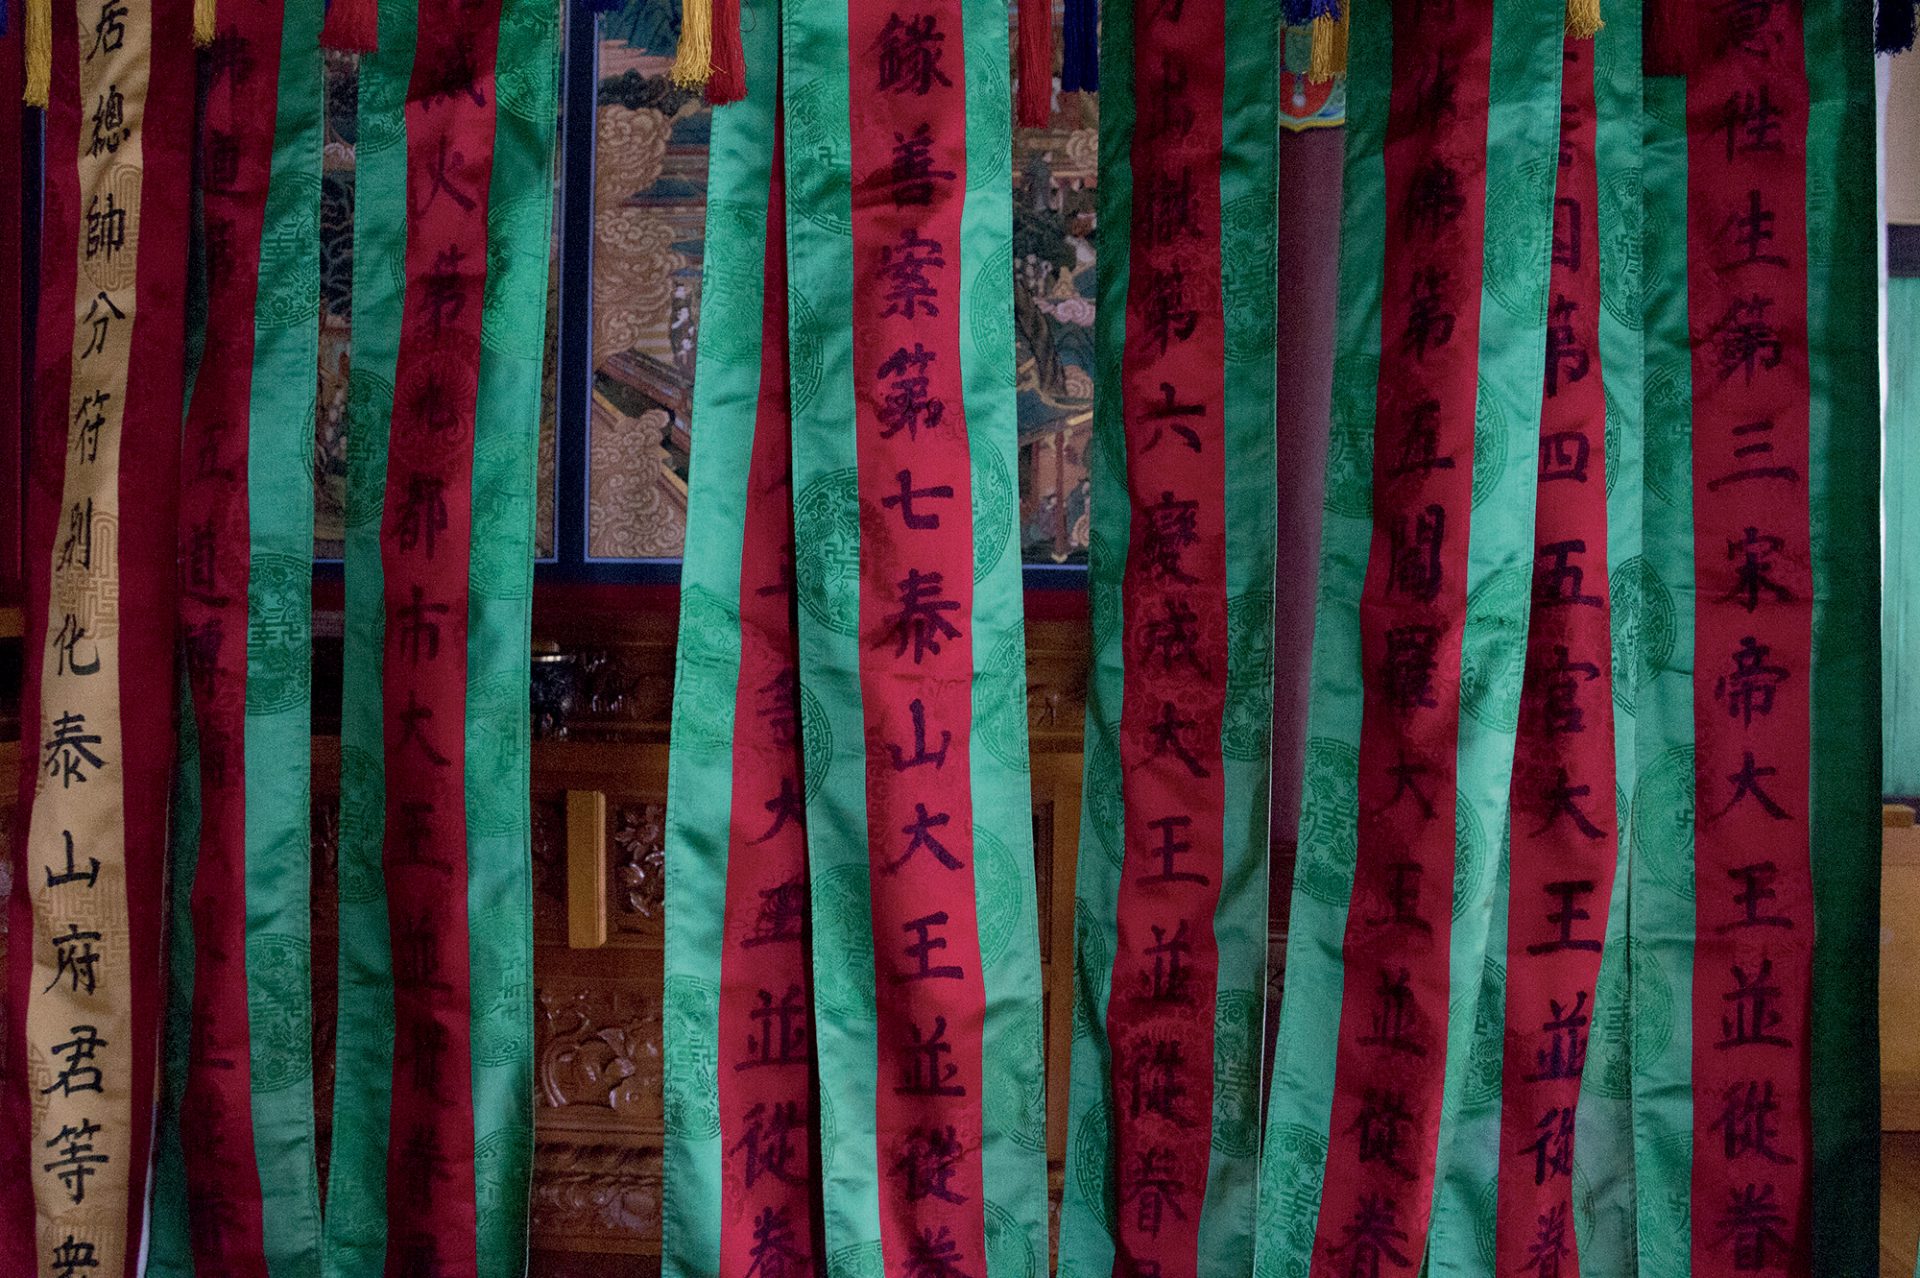 意性生第三宋帝大王並從眷
第四五官大王並從眷
佛第五閻羅大王並從眷
獄第六變成大王並從眷
錄善案第七泰山大王並從眷
大王並從眷
滅火第九都市大王並從眷
佛道第五道轉王
居總帥分符別化泰山府君等衆